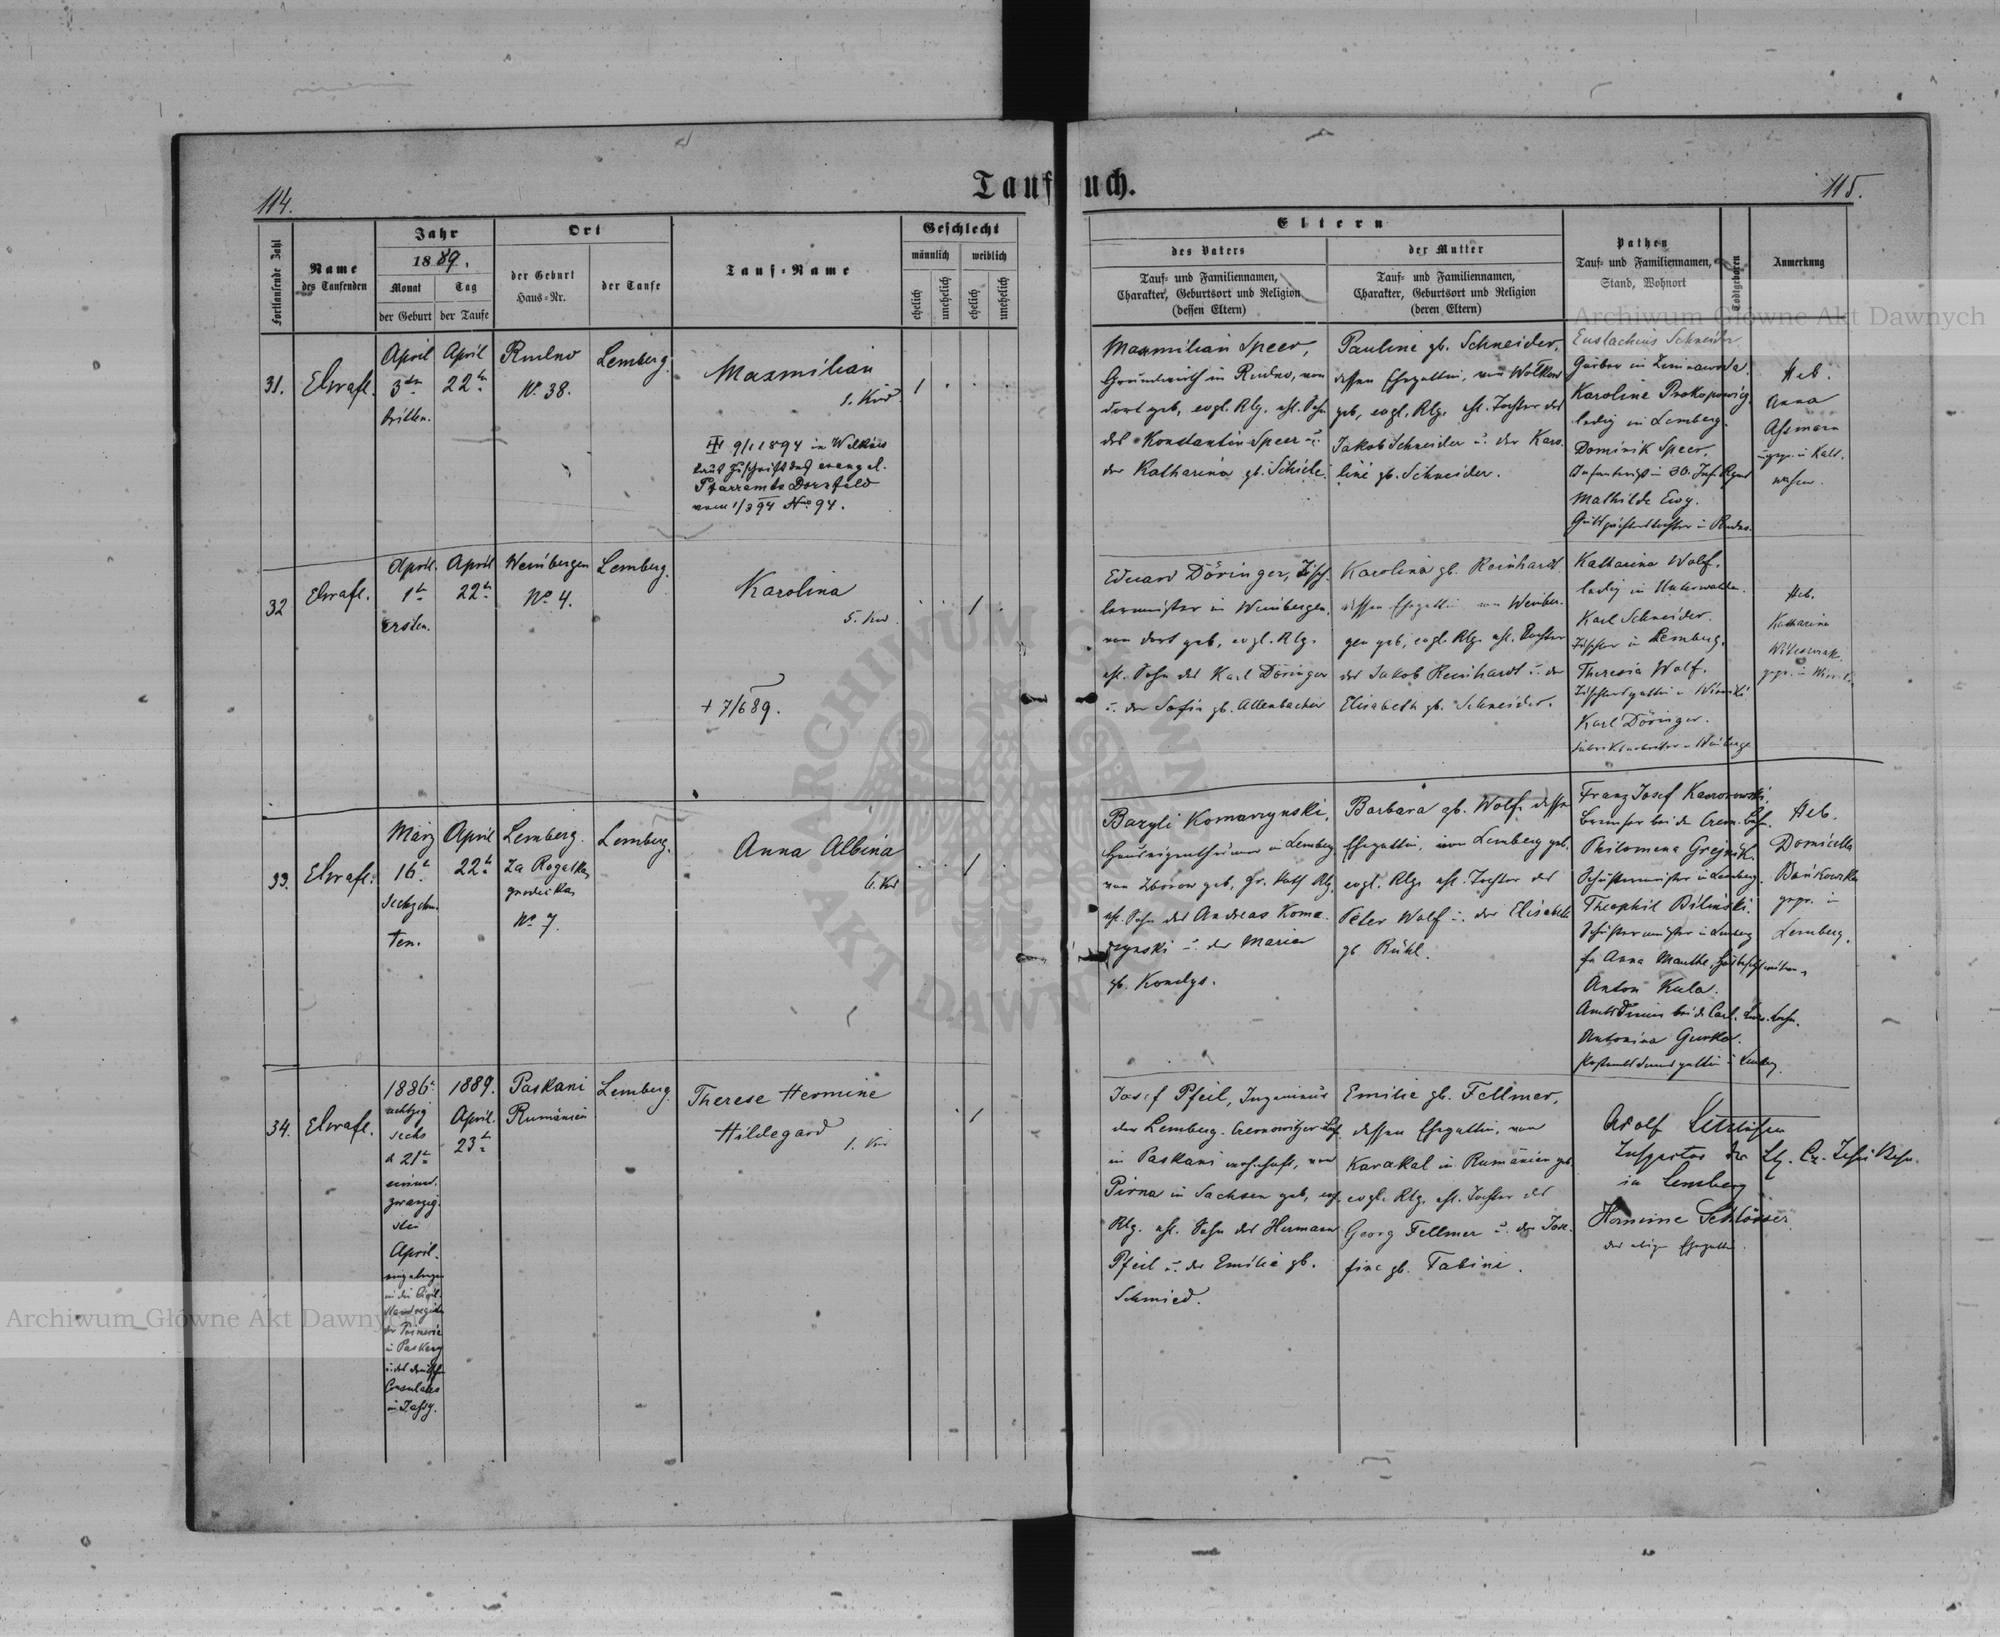 Taufbuch.
114.
115.
Fortlaufende Zahl
Name
des Taufenden
Jahr
1889.
Monat
der Geburt
Tag
der Taufe
Ort
der Geburt
Haus-Nr.
der Taufe
Tauf-Name
Geschlecht
männlich
weiblich
ehelich
unehelich
ehelich
unehelich
Eltern
des Vaters
Tauf- und Familiennamen,
Charakter, Geburtsort und Religion
(dessen Eltern)
der Mutter
Tauf- und Familiennamen,
Charakter, Geburtsort und Religion
(deren Eltern)
Pathen
Tauf- und Familiennamen,
Stand, Wohnort
Todtgeboren
Anmerkung
31.
April
3ten
dritten.
April
22te
Rudno
No 38.
Lemberg.
Maxmilian
1. Kind
9/1 1894 in
laut Zuschrift des evangel.
Pfarramts Dornfeld
vom 1/3 94 No 94.
1
Maxmilian Speer,
Grundwirth in Rudno, von
dort geb, evgl. Rlg. ehl. Sohn
des Konstantin Speer u.
der Katharina gb. Schiele.
Pauline gb. Schneider,
dessen Ehegattin, von
geb, evgl. Rlg. ehl. Tochter des
Jakob Schneider u. der Karo-
line gb. Schneider.
Eustachius Schneider
in Zimnawoda.
Karoline Prokopowicz.
ledig in Lemberg.
Dominik Speer.
in 30. Inf. Rgmt
Mathilde Ewy.
in Rudno.
Heb.
Anna
32
April
1te
ersten.
April
22te
Weinbergen
No 4.
Lemberg.
Karolina
5. Kind
+ 7/6 89.
1
Eduard Döringer, Tisch-
lermeister in Weinbergen,
von dort geb, evgl. Rlg.
ehl. Sohn des Karl Döringer
u. der Sofie gb. Allenbacher
Karolina gb. Reinhardt
dessen Ehegattin von Weinber-
gen geb, evgl. Rlg. ehl. Tochter
des Jakob Reinhardt u. der
Elisabeth gb. Schneider.
Katharina Wolf.
ledig in Unterwalden.
Karl Schneider.
Tischler in Lemberg.
Theresia Wolf.
Tischlersgattin in
Karl Döringer.
Fabriksarbeiter in Weinbergen
Heb.
Katharina
33.
März
16te
sechzehn-
ten.
April
22te
Lemberg.
Za Rogatką
grodecką
No 7.
Lemberg.
Anna Albina
6. Kind
1
Bazyli Komarzynski,
Hauseigenthümer in Lemberg
von Zborow geb, gr. kath Rlg.
ehl. Sohn des Andreas Koma-
rzynski u. der Maria
gb. Kondys.
Barbara gb. Wolf dessen
Ehegattin, von Lemberg geb,
evgl. Rlg. ehl. Tochter des
Peter Wolf u. der Elisabeth
gb Bühl.
Franz Josef
Philomena
Schustermeister in Lemberg.
Theophil Bilinski.
Schustermeister in Lemberg
Anton Kula.
Antonina Gurka.
Heb.
Domicella
gepr. in
Lemberg.
34.
1886
achtzig
sechs
d 21te
einund-
zwanzig-
sten
April.
eingetragen
in das Civil-
standregister
der Primarie
in Paskany
u. des deutschen
Consulates
in Jassy.
1889.
April.
23te
Paskani
Rumänien
Lemberg.
Therese Hermine
Hildegard
1. Kind
1
Josef Pfeil, Ingenieur
der Lemberg-Czernowitzer
in Paskani wohnhaft, von
Pirna in Sachsen geb, evgl.
Rlg. ehl. Sohn des Hermann
Pfeil u. der Emilie gb.
Schmied.
Emilie gb. Fellmer,
dessen Ehegattin, von
Karakal in Rumänien geb.
evgl. Rlg. ehl. Tochter des
Georg Fellmer u. der Jose-
fine gb. Fabini.
Adolf
Inspector der
in Lemberg
Hermine Schlösser
der obigen Ehegattin.
Archiwum Główne Akt Dawnych
Archiwum Główne Akt Dawnych
ARCHIWUM GŁÓWNE AKT DAWNYCH